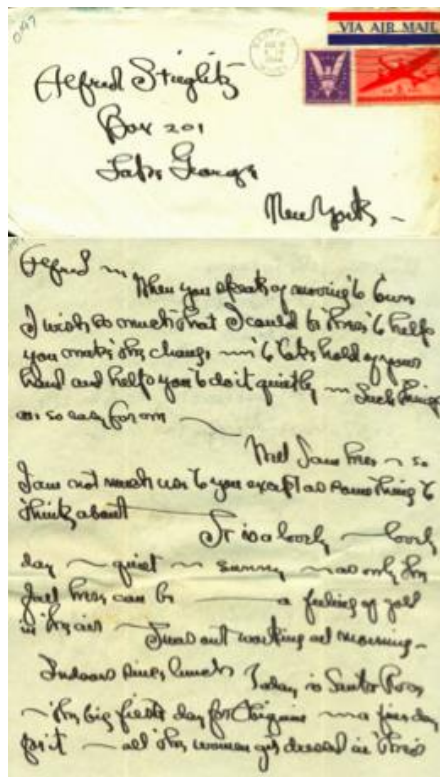 047
VIA AIR MAIL
Alfred Stieglitz
Box 201
Lake George
New York –
Alfred ~
When you speak of moving to town
I wish so much that I could be there to help
you make the change ~ to take hold of your
hand and help you to do it quietly ~ Such things
are so easy for me ~
Well I am here ~ so
I am not much use to you except as something to
think about —
It is a lovely — lovely
day ~ quiet ~ sunny ~ as only the
fall here can be — a feeling of gold
in the air ~ I was out working all morning –
Indoors since lunch Today is Santa Rosa
~ the big fiesta day for Abiquiu ~ a fine day
for it ~ all the women get dressed in their